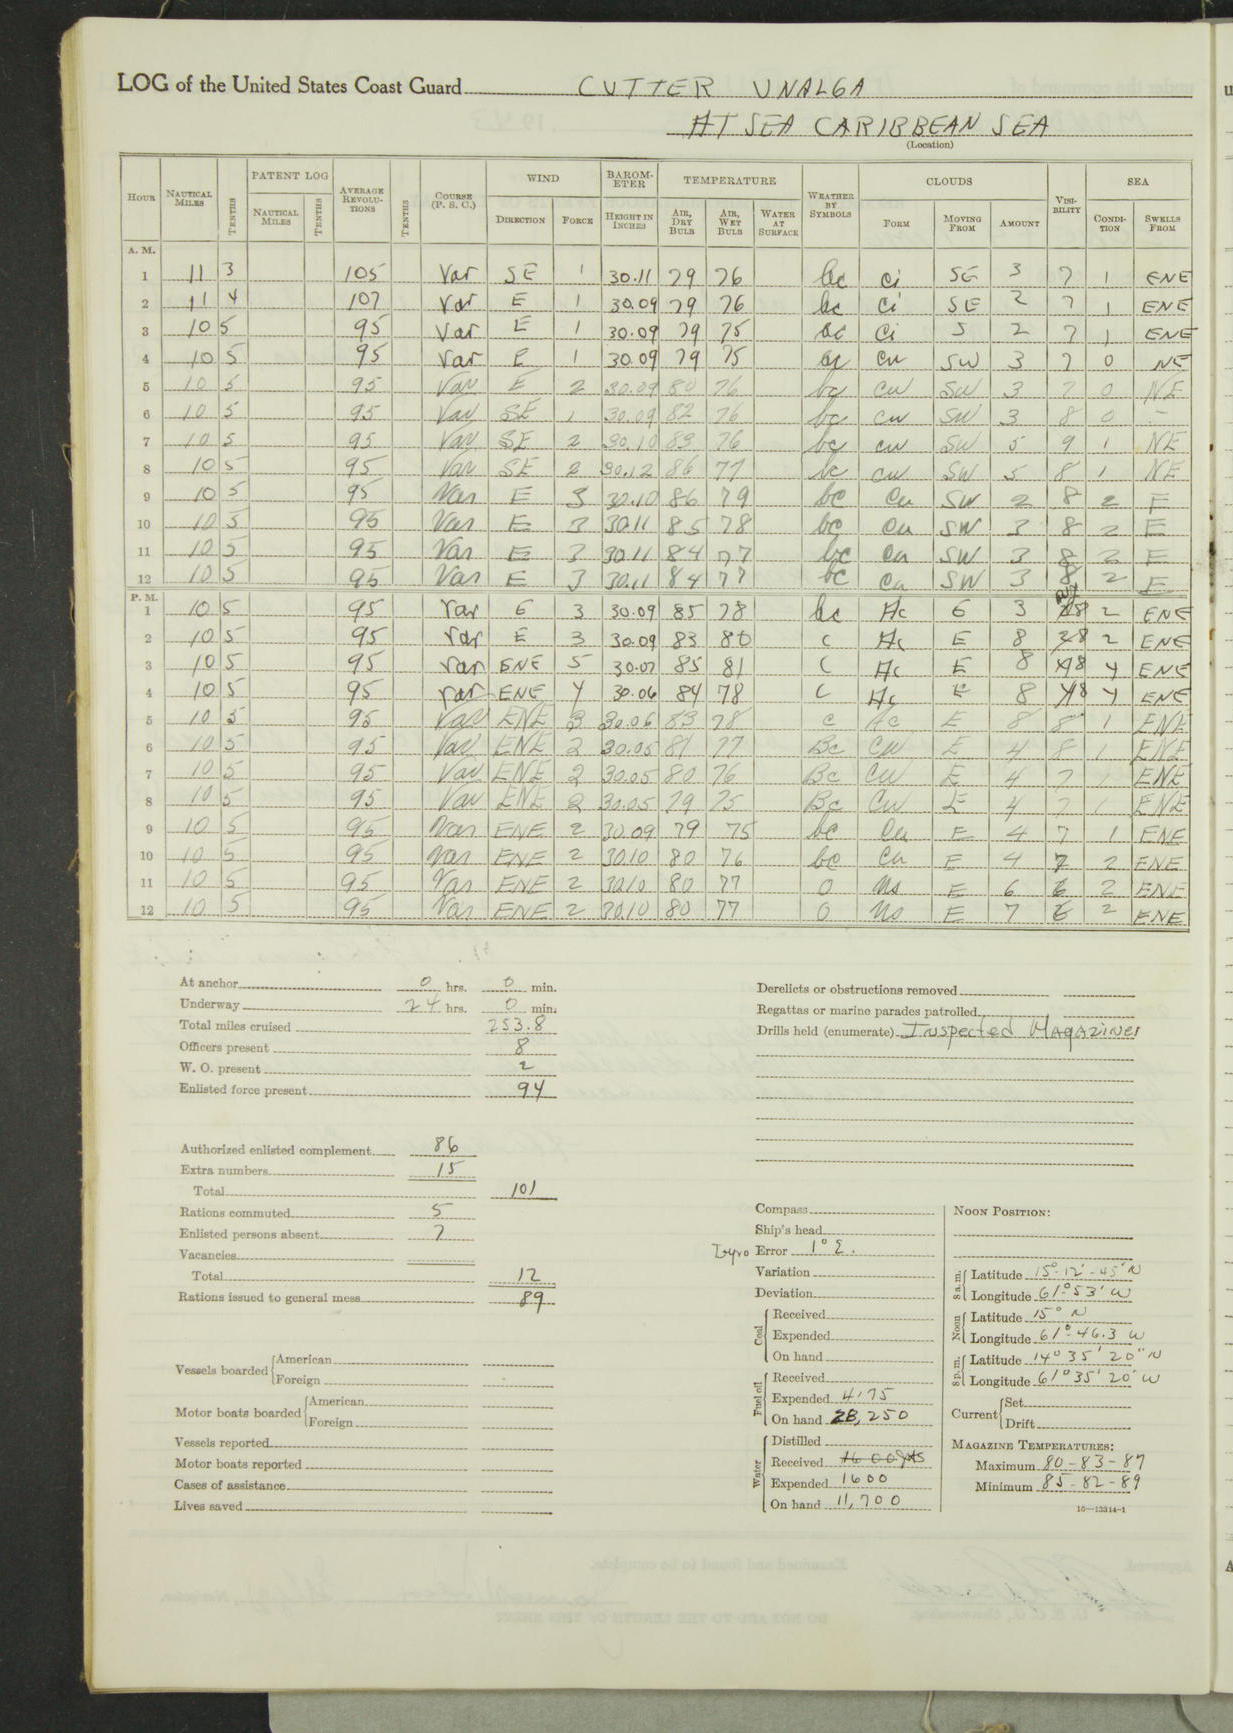 LOG of the United States Coast Guard CUTTER UNALGA
AT SEA CARIBBEAN SEA
(Location)
HOUR NAUTICAL MILES TENTHS PATENT LOG NAUTICAL MILES TENTHS AVERAGE REVOLU-TIONS TENTHS COURSE (P. S. C.) WIND DIRECTION FORCE BAROM-ETER HEIGHT IN INCHES TEMPERATURE AIR, DRY BULB AIR, WET BULB WATER AT SURFACE WEATHER BY SYMBOLS CLOUDS FORM MOVING FROM AMOUNT VISI-BILITY SEA CONDI-TION SWELLS FROM
A. M.
1 11 3 105 Var SE 1 30.11 79 76 bc Ci SE 3 7 1 ENE
2 11 4 107 Var E 1 30.09 79 76 bc Ci SE 2 7 1 ENE
3 10 5 95 Var E 1 30.09 79 75 bc Ci S 2 7 1 ENE
4 10 5 95 Var E 1 30.09 79 75 bc Cu SW 3 7 0 NE
5 10 5 95 Var E 2 30.09 80 76 bc cu SW 3 7 0 NE
6 10 5 95 Var SE 1 30.09 82 76 bc cu SW 3 8 0 -
7 10 5 95 Var SE 2 30.10 83 76 bc cu SW 5 9 1 NE
8 10 5 95 Var SE 2 30.12 86 77 bc cu SW 5 8 1 NE
9 10 5 95 Var E 3 30.10 86 79 bc Cu SW 2 8 2 E
10 10 5 95 Var E 3 30.11 85 78 bc Cu SW 3 8 2 E
11 10 5 95 Var E 3 30.11 84 77 bc Cu SW 3 8 2 E
12 10 5 95 Var E 3 30.11 84 77 bc Cu SW 3 8 2 E
P. M.
1 10 5 95 Var E 3 30.09 85 78 bc Ac E 3 8 2 ENE
2 10 5 95 Var E 3 30.09 83 80 c Ac E 8 8 2 ENE
3 10 5 95 Var ENE 5 30.07 85 81 c Ac E 8 8 4 ENE
4 10 5 95 Var ENE 4 30.06 84 78 c Ac E 8 8 4 ENE
5 10 5 95 Var ENE 3 30.06 83 78 c Ac E 8 8 1 ENE
6 10 5 95 Var ENE 2 30.05 81 77 Bc Cu E 4 8 1 ENE
7 10 5 95 Var ENE 2 30.05 80 76 Bc Cu E 4 7 1 ENE
8 10 5 95 Var ENE 2 30.05 79 75 Bc Cu E 4 7 1 ENE
9 10 5 95 Var ENE 2 30.09 79 75 bc Cu E 4 7 1 ENE
10 10 5 95 Var ENE 2 30.10 80 76 bc Cu E 4 7 2 ENE
11 10 5 95 Var ENE 2 30.10 80 77 O Ns E 6 6 2 ENE
12 10 5 95 Var ENE 2 30.10 80 77 O Ns E 7 6 2 ENE
At anchor 0 hrs. 0 min.
Underway 24 hrs. 0 min.
Total miles cruised 253.8
Officers present 8
W. O. present 2
Enlisted force present 94
Authorized enlisted complement 86
Extra numbers 15
Total 101
Rations commuted 5
Enlisted persons absent 7
Vacancies
Total 12
Rations issued to general mess 89
Vessels boarded American
Foreign
Motor boats boarded American
Foreign
Vessels reported
Motor boats reported
Cases of assistance
Lives saved
Derelicts or obstructions removed
Regattas or marine parades patrolled
Drills held (enumerate) Inspected Magazines
Compass
Ship's head
Gyro Error 1° E.
Variation
Deviation
Coal Received
Expended
On hand
Fuel oil Received
Expended 4175
On hand 28,250
Water Distilled
Received
Expended 1600
On hand 11,700
NOON POSITION:
8 a. m. Latitude 15°-12'-45" N
Longitude 61°-53' W
Noon Latitude 15° N
Longitude 61°-46.3 W
8 p. m. Latitude 14° 35' 20" N
Longitude 61° 35' 20" W
Current Set
Drift
MAGAZINE TEMPERATURES:
Maximum 80-83-87
Minimum 85-82-89
16—13314-1